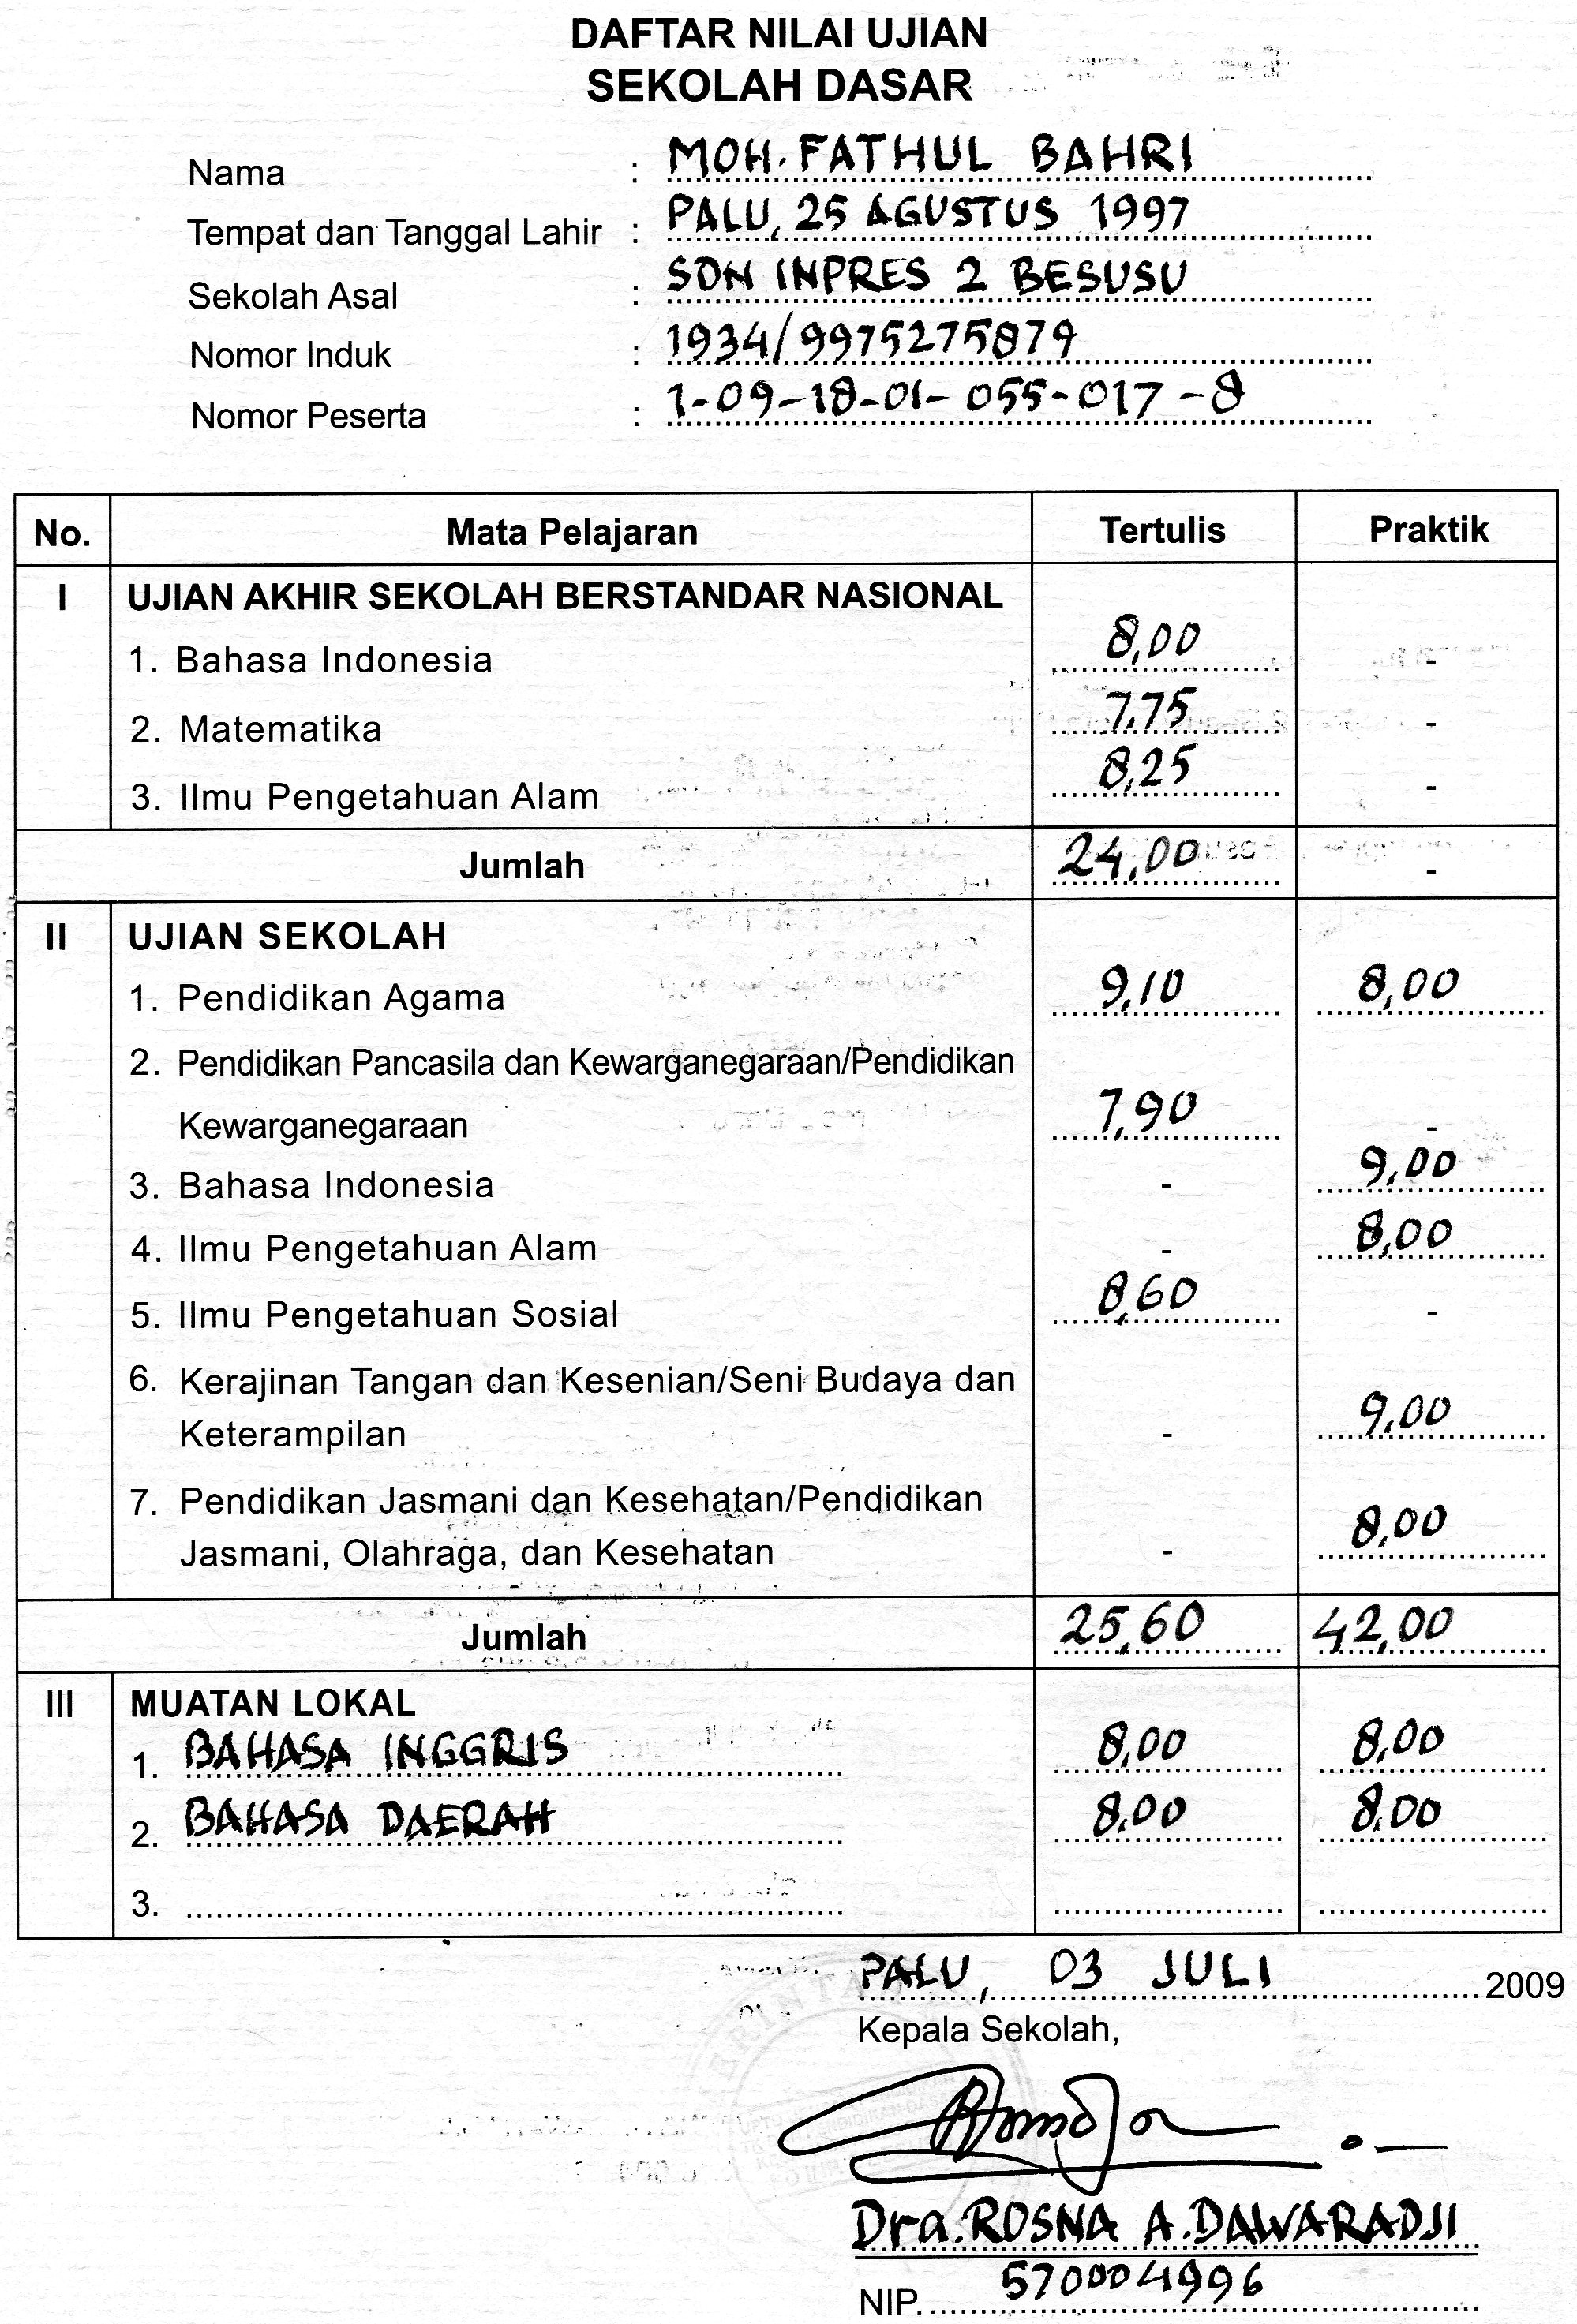 DAFTAR NILAI UJIAN
SEKOLAH DASAR
Nama : MOH. FATHUL BAHRI
Tempat dan Tanggal Lahir : PALU, 25 AGUSTUS 1997
Sekolah Asal : SDN INPRES 2 BESUSU
Nomor Induk : 1934/9975275879
Nomor Peserta : 1-09-18-01-055-017-8
No. Mata Pelajaran Tertulis Praktik
I UJIAN AKHIR SEKOLAH BERSTANDAR NASIONAL
1. Bahasa Indonesia 8,00 -
2. Matematika 7,75 -
3. Ilmu Pengetahuan Alam 8,25 -
Jumlah 24,00 -
II UJIAN SEKOLAH
1. Pendidikan Agama 9,10 8,00
2. Pendidikan Pancasila dan Kewarganegaraan/Pendidikan
Kewarganegaraan 7,90 -
3. Bahasa Indonesia - 9,00
4. Ilmu Pengetahuan Alam - 8,00
5. Ilmu Pengetahuan Sosial 8,60 -
6. Kerajinan Tangan dan Kesenian/Seni Budaya dan
Keterampilan - 9,00
7. Pendidikan Jasmani dan Kesehatan/Pendidikan
Jasmani, Olahraga, dan Kesehatan - 8,00
Jumlah 25,60 42,00
III MUATAN LOKAL
1. BAHASA INGGRIS 8,00 8,00
2. BAHASA DAERAH 8,00 8,00
3.
PALU, 03 JULI 2009
Kepala Sekolah,
Dra. ROSNA A. DAWARADJI
NIP. 570004996